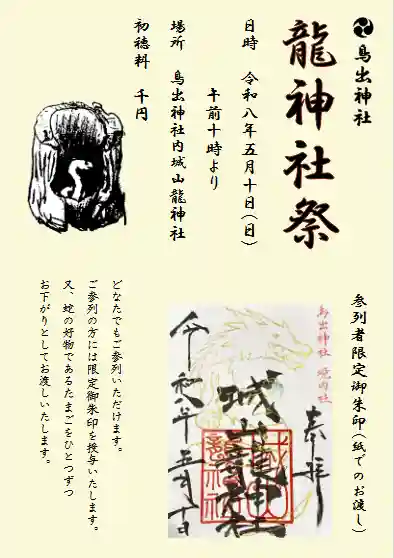 鳥出神社
龍神社祭
日時　令和八年五月十日（日）
午前十時より
場所　鳥出神社内城山龍神社
初穂料　千円
参列者限定御朱印（紙でのお渡し）
鳥出神社 境内社
奉拝
城山龍神社
令和八年五月十日
どなたでもご参列いただけます。
ご参列の方には限定御朱印を授与いたします。
又、蛇の好物であるたまごをひとつずつ
お下がりとしてお渡しいたします。